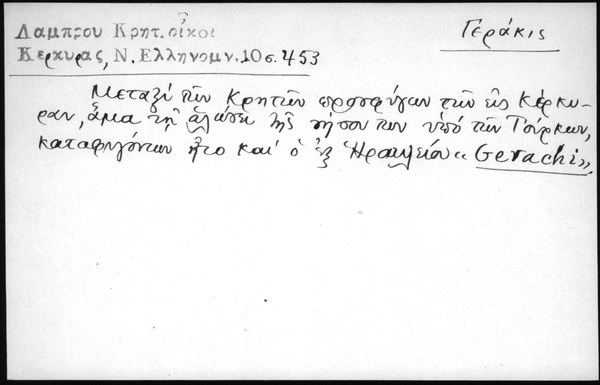 Λαμπρου Κρητ.οἶκοι
Κερκυρας, Ν. Ελληνομν.10 σ.453
Γεράκις
Μεταξύ τῶν Κρητῶν προσφύγων τῶν εἰς Κέρκυ-
ραν, ἅμα τῇ ἁλώσει τῆς νήσου των ὑπό τῶν Τούρκων,
καταφυγόντων ἦτο καί ὁ ἐξ Ἡρακλείου «Gerachi»,